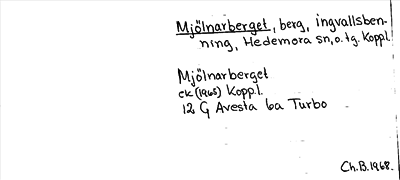 Mjölnarberget, berg, ingvallsben-
ning, Hedemora sn, o. tg. Koppl.
Mjölnarberget
ek (1965) Koppl.
12 G Avesta 6a Turbo
Ch.B. 1968.